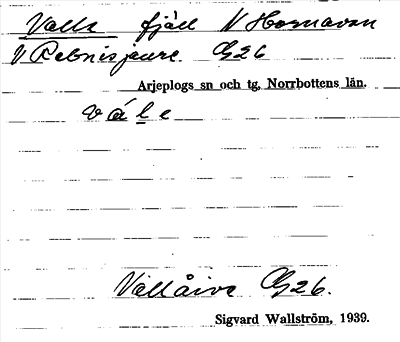 Valle fjäll N Hornavan
V Rebnisjaure G26
Arjeplogs sn och tg, Norrbottens län.
vále
Vállåive G26.
Sigvard Wallström, 1939.